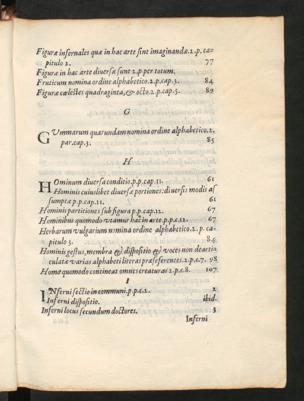 Figuræ infernales quæ in hac arte sint imaginandæ.2.p.ca-
pitulo 2. 77
Figuræ in hac arte diuersæ sunt.2.p per totum.
Fruticum nomina ordine alphabetico.2.p.cap.3. 84
Figuræ cælestes quadraginta,& octo.2.p.cap.5. 89
G
GVmmarum quarundam nomina ordine alphabetico.2.
par.cap.3. 85
H
HOminum diuersa conditio.p.p.cap.11. 61
Hominis cuiuslibet diuersæ portiones: diuersis modis as
sumptæ p.p.cap.11. 61
Hominis partitiones sub figura p.p.cap.12. 67
Hominibus quomodo vtamur hac in arte.p.p.c.12. 67
Herbarum vulgarium nomina ordine alphabetico.2.p. ca-
pitulo 3. 84
Hominis gestus,membra & dispositio & voces non dearticu
culatæ varias alphabeti literas præseferentes.2.p.c.7. 98
Homo quomodo contineat omnis creaturas 2.p.c.8. 107
I
INferni sectio in communi.p.p.c.2. 2
Inferni dispositio. ibid.
Inferni locus secundum doctores. 3
Inferni